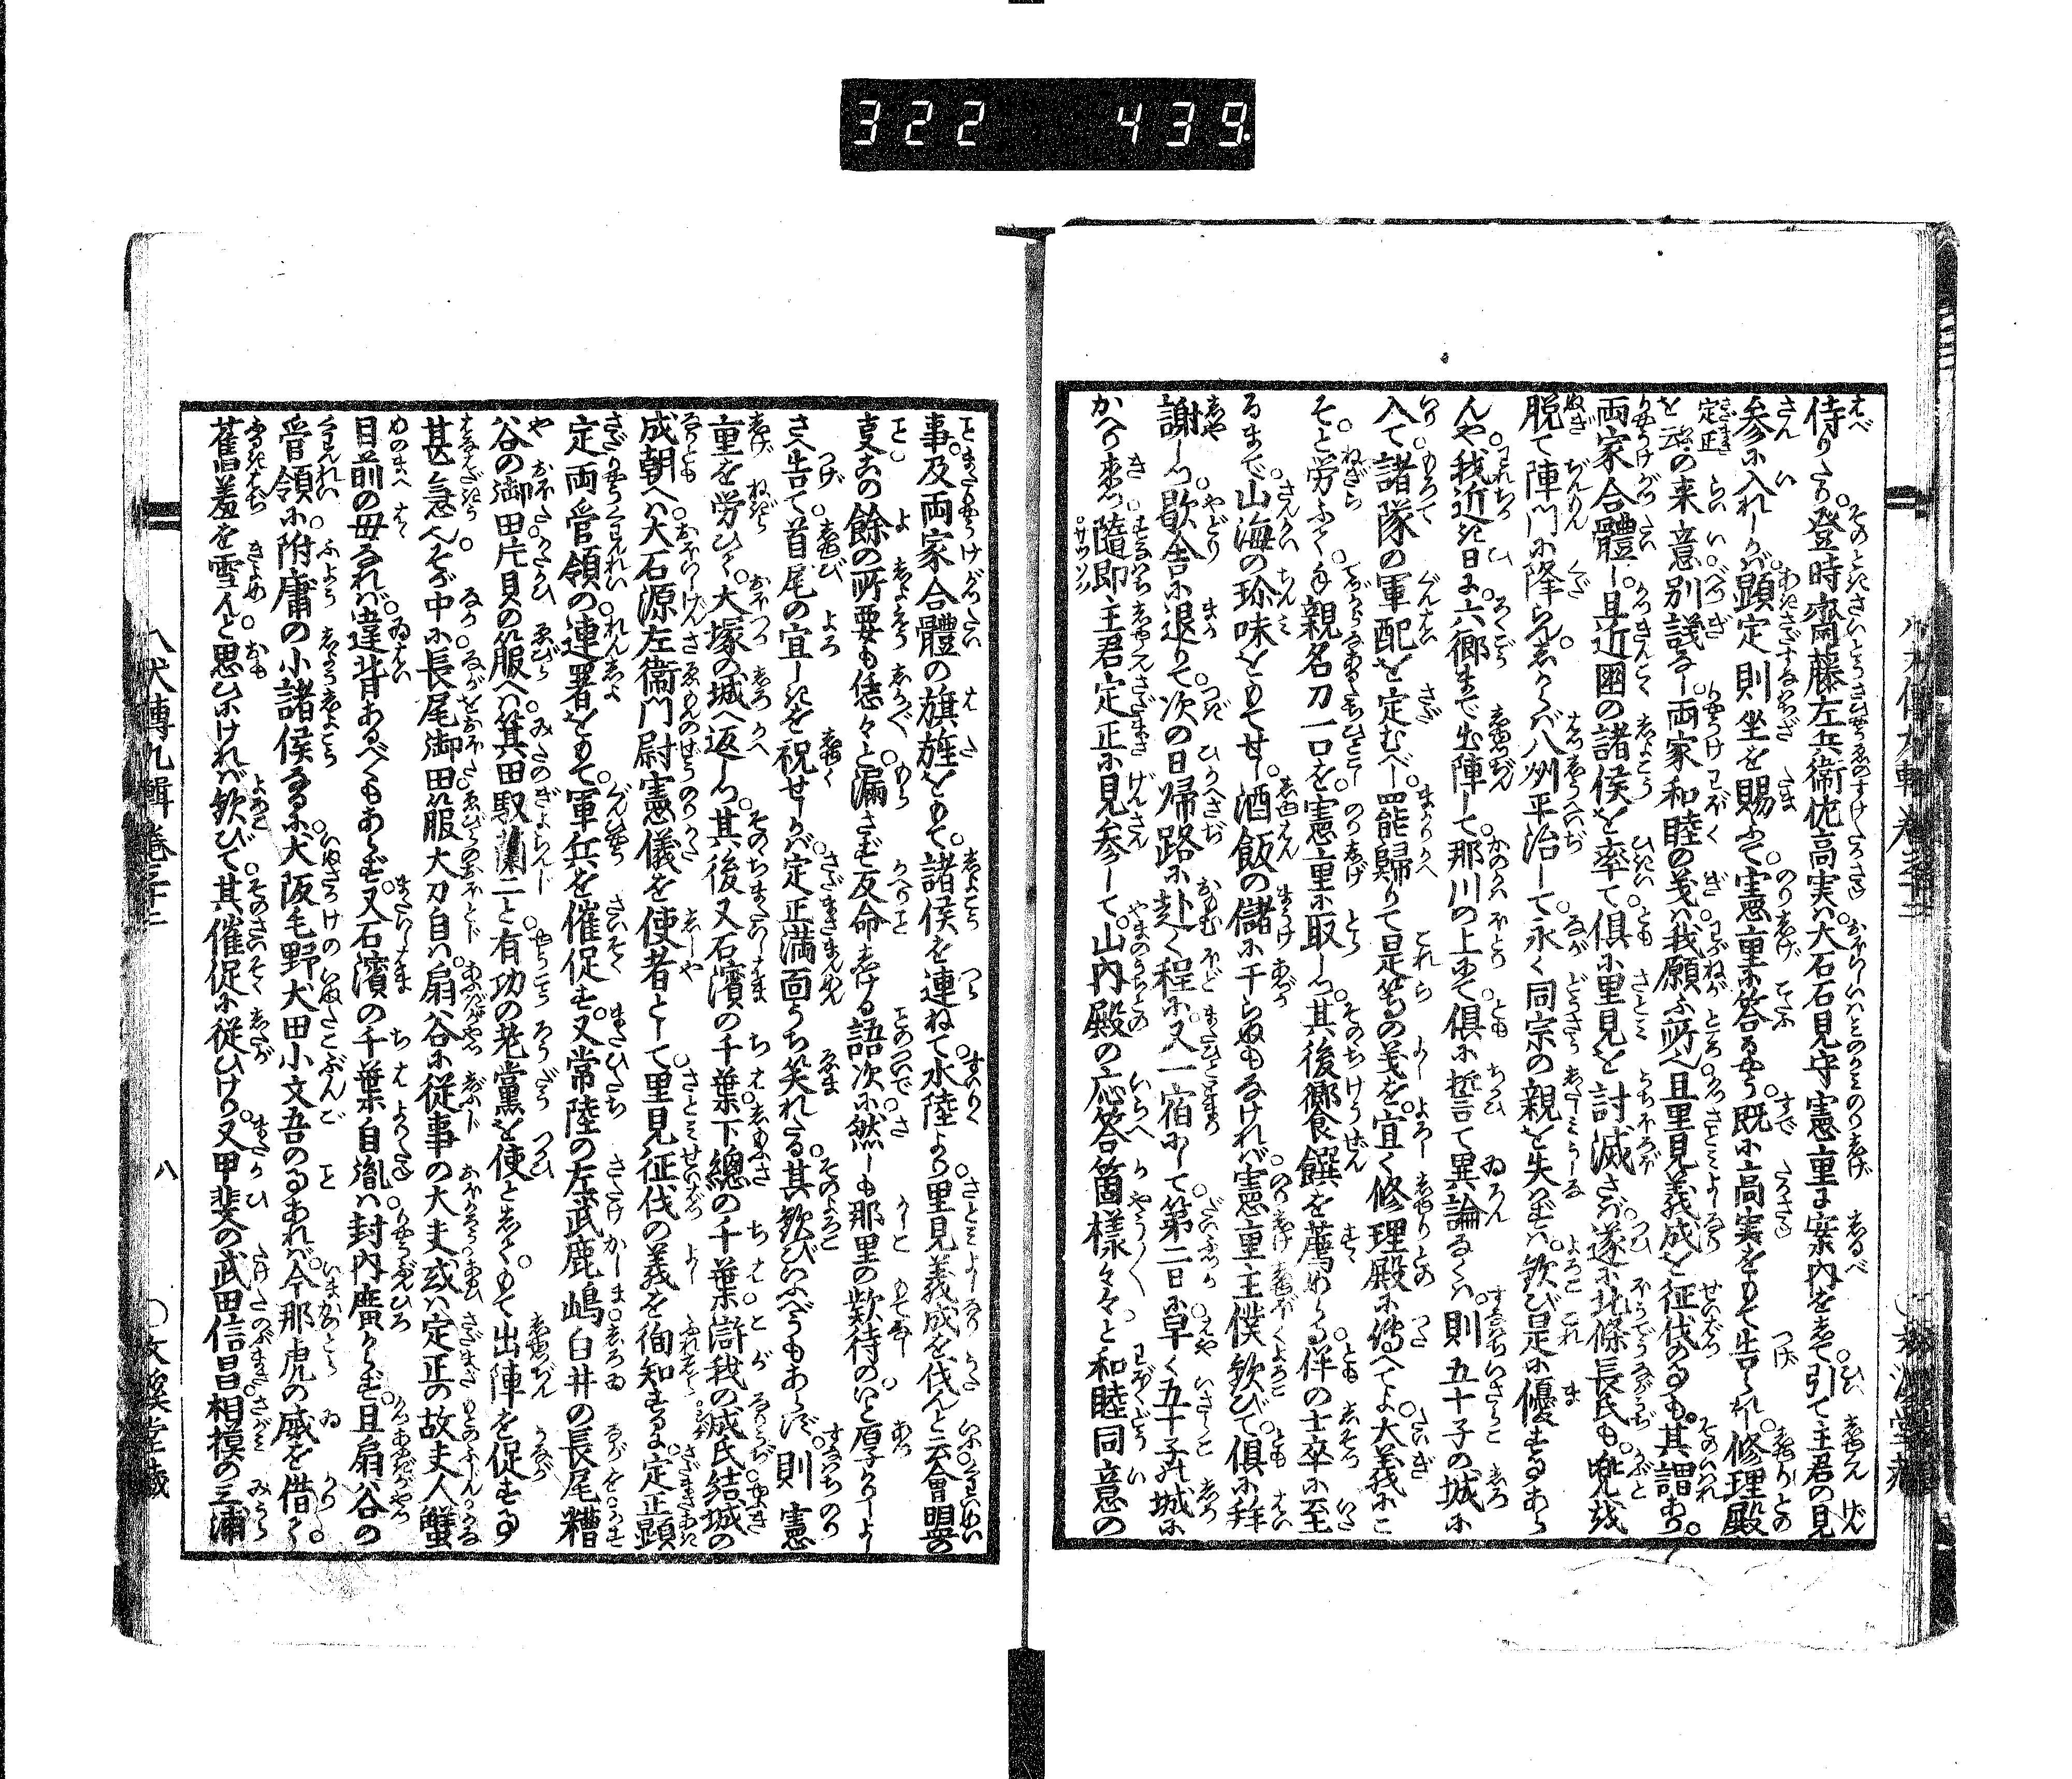 322 439
侍りたり。登時齋藤左兵衛佐高実ハ。大石石見守憲重に案内をして。引て主君の見
参に入れしかバ。顕定則坐を賜ふて。憲重に答るやう。既に高実をもて告られし。修理殿
定正をいふの来意別議なし。両家和睦の義ハ。我願ふ所へ。且里見義成を征伐の事も。其謂あり。
両家合體し。且近國の諸侯を率て。倶に里見を討滅さバ。遂に北條長氏も。兜を
脱て陣門に降らん。しからバ八州平治して。永く同宗の親を失ハずバ。欽び是に優すことあら
んや。我近き日に。六郷まで出陣して。那川の上にて。倶に誓て異論なくハ。則五十子の城に
入て。諸隊の軍配を定むべし。罷歸りて是等の義を。宜く修理殿に傳へてよ。大義にこ
そ。と労ふて。手親名刀一口を。憲重に取しつ。其後饗饌を薦めらる。伴の士卒に至
るまで。山海の珍味をもて。甘し酒飯の儲に干らぬもなけれバ。憲重主僕欽びて。倶に拜
謝しつ。歇舎に退りて。次の日歸路に赴く程に。又一宿にして。第二日に早く五十子の城に
かへり来つ。隨即主君定正に見参して。山内殿の応答箇樣々々と。和睦同意の
事。及両家合體の旗旌をもて。諸侯を連ねて。水陸より。里見義成を伐んと云會盟の
事。その餘の所要も恁々と。漏さず反命しける。語次に。然しも那里の欵待の。いと厚かりしよし
さへ告て。首尾の宜しきを祝せしかバ。定正満面うち笑れたる。其欽びいふべうもあらず。則憲
重を労ひて。大塚の城へ返しつ。其後又石濱の千葉。下總の千葉。滸我の成氏。結城の
成朝へハ。大石源左衛門尉憲儀を使者として。里見征伐の義を徇知するに。定正顕
定両管領の連署をもて。軍兵を催促す。又常陸の左武鹿嶋。白井の長尾。糟
谷の御田。片貝の箙へハ。箕田馭蘭二と。有功の老黨を使として。もて出陣を促すこと
甚急へ。そが中に長尾御田箙大刀自ハ。扇谷に従事の大夫。或ハ定正の故夫人蟹
目前の毋なれバ。違背あるべくもあらず。又石濱の千葉自胤ハ。封内廣からず。且扇谷の
管領に附庸の小諸侯なるに。犬阪毛野犬田小文吾の事あれバ。今那虎の威を借らく。
舊羞を雪んと思ひけれバ。欽びて其催促に従ひけり。又甲斐の武田信昌。相摸の三浦
八犬傳九輯巻三十二
八
○文溪堂藏